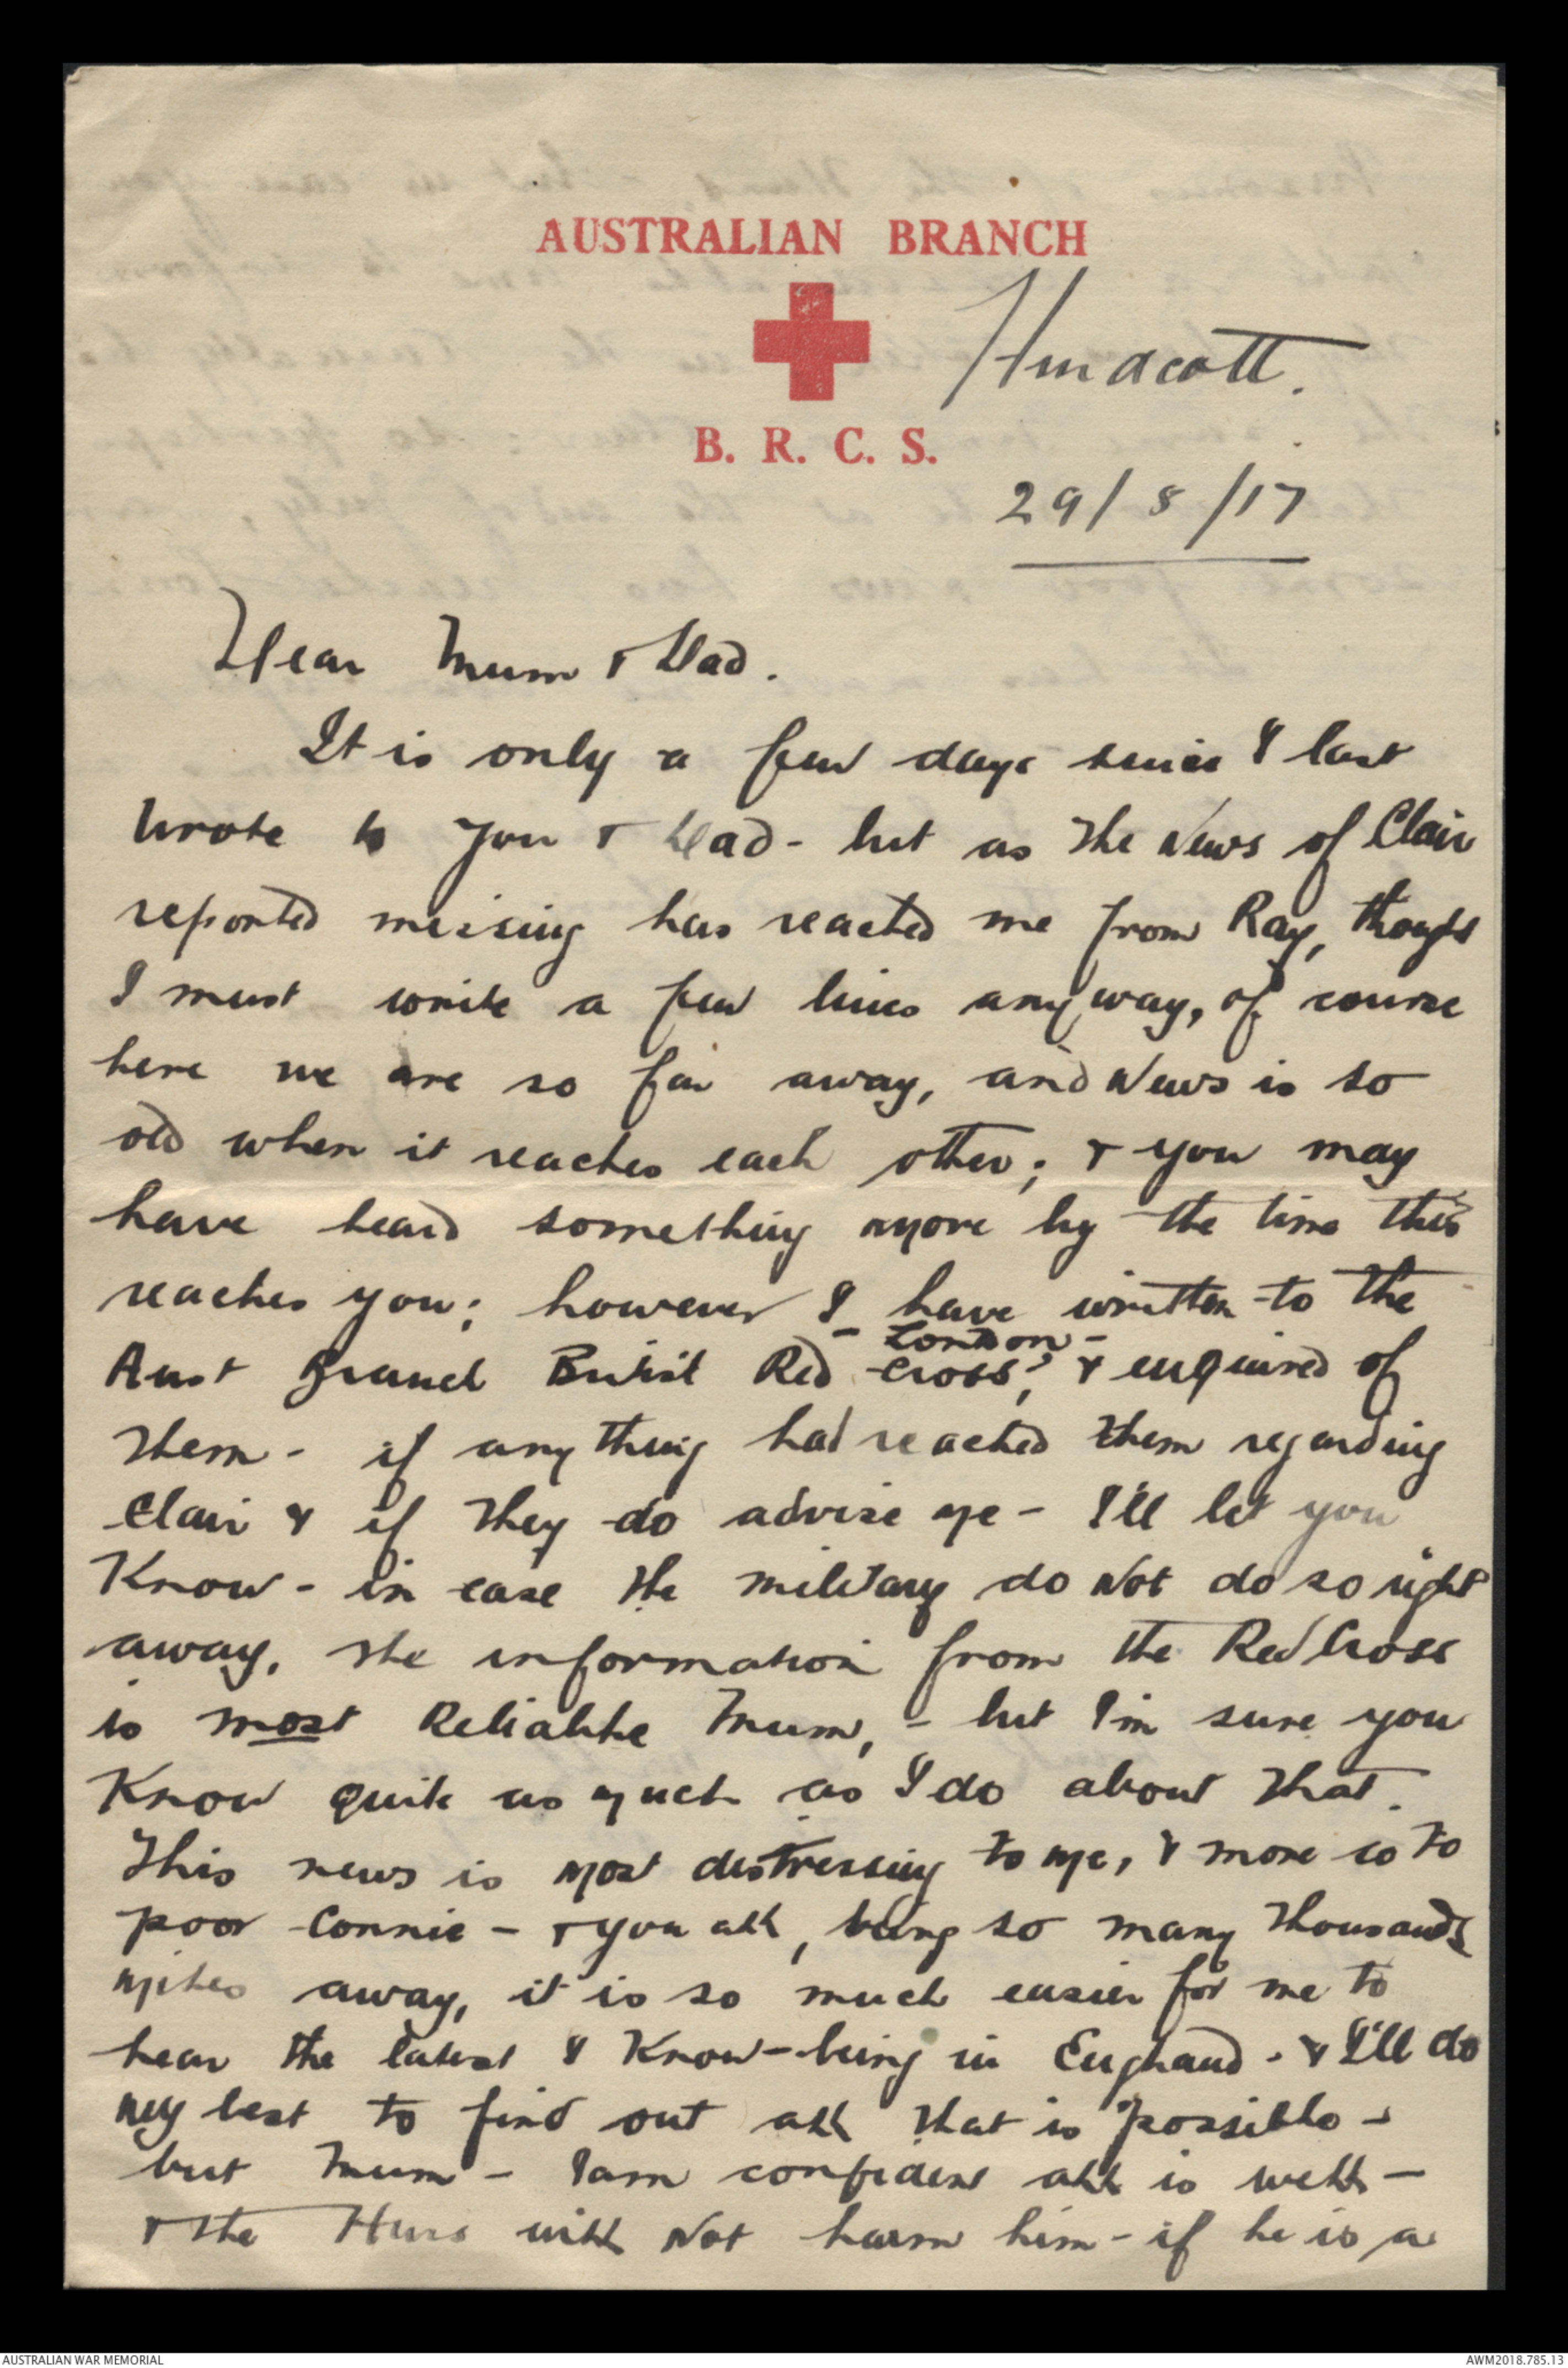 AUSTRALIAN BRANCH
Hurdcott.
B. R. C. S.
29/8/17
Dear Mum & Dad.
It is only a few days since I last
wrote to you & Dad - but as the News of Clair
reported missing has reached me from Ray, thought
I must write a few lines anyway, of course
here we are so far away, and News is so
old when it reaches each other; & you may
have heard something more by the time this
reaches you; however I have written to the
- London -
Aust Branch British Red Cross, & enquired of
them - if anything had reached them regarding
Clair & if they do advise me - I'll let you
Know - in case the military do Not do so right
away, the information from the Red Cross
is most Reliable Mum, - but I'm sure you
Know quite as much as I do about that.
This news is most distressing to me, & more so to
poor Connie - & you all, being so many thousands
miles away, it is so much easier for me to
hear the latest & Know - being in England. & I'll do
my best to find out all that is possible -
but Mum - I am confident all is well -
& the Huns will Not harm him - if he is a
AUSTRALIAN WAR MEMORIAL
AWM2018.785.13